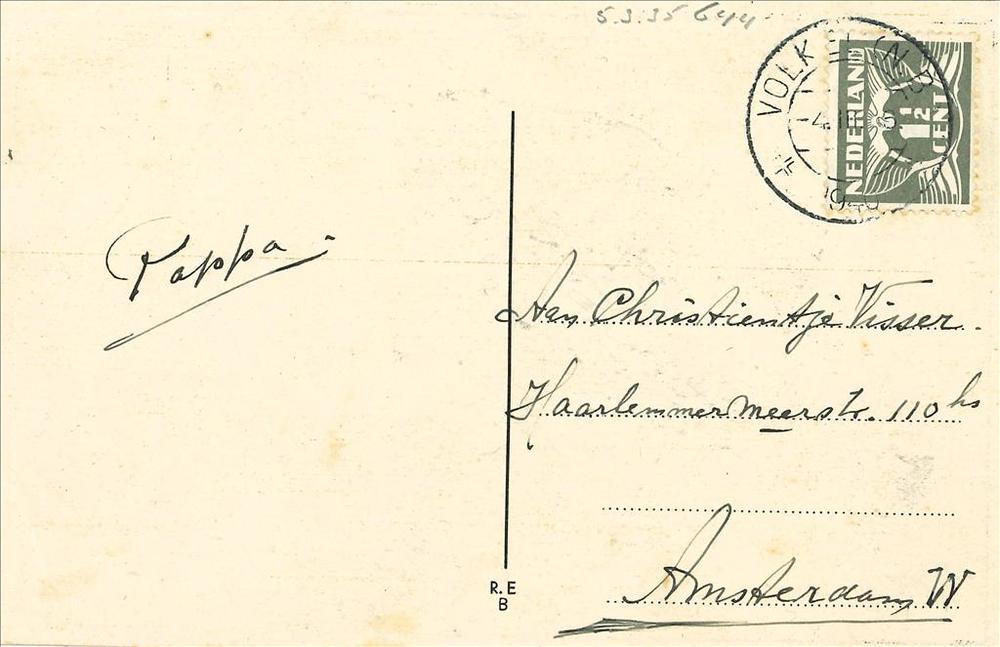 5.3.35 644
VOLKEL (N.B)
1940
NEDERLAND
1½
CENT
Pappa.
Aan Christientje Visser.
Haarlemmermeerstr. 110 hs
Amsterdam W
R.E
B